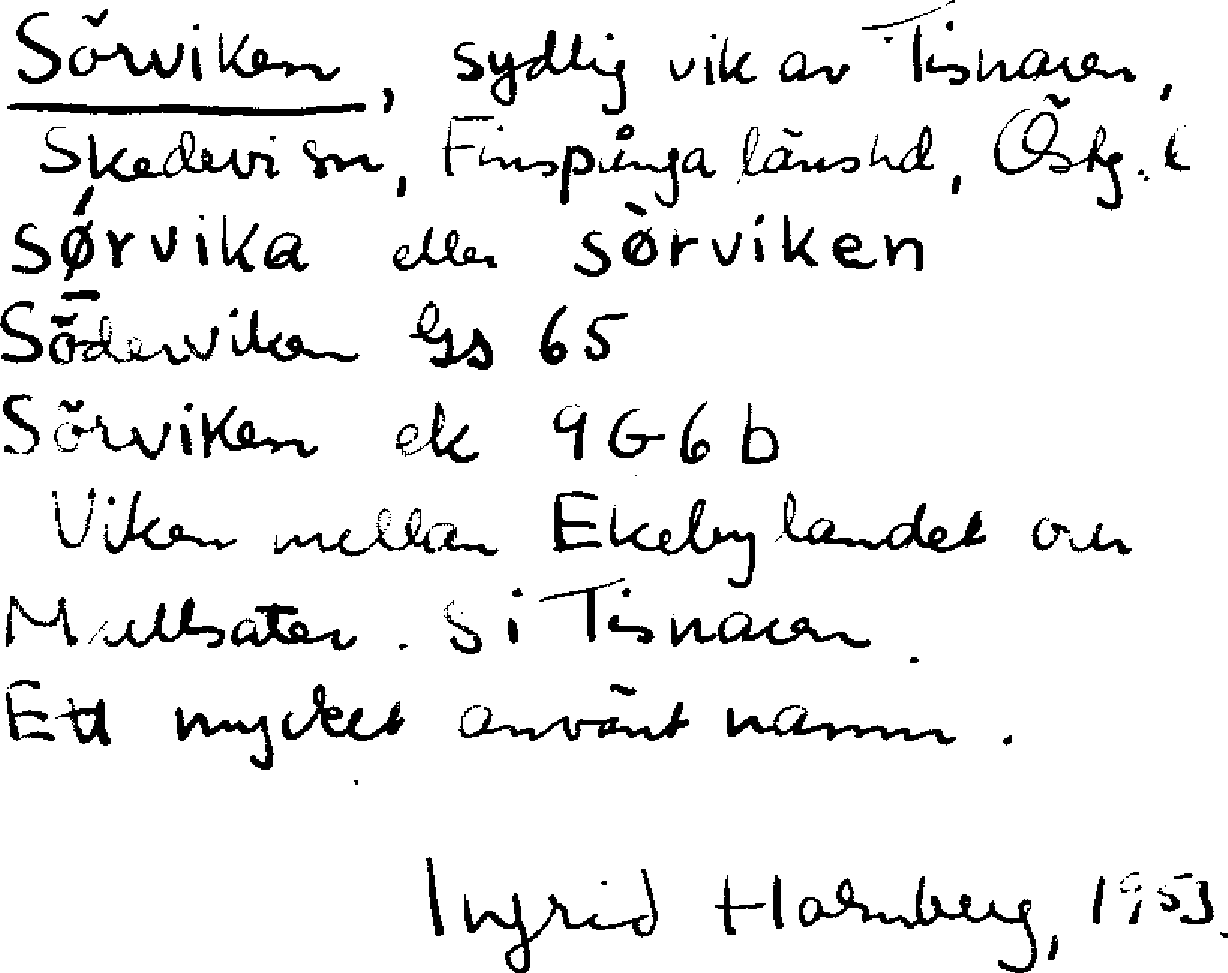 Sörviken, sydlig vik av Tisnaren,
Skedevi sn, Finspånga länshd, Östg. l
sø̀rvika eller sø̀rviken
Söderviken Gs 65
Sörviken ek 9G6b
Viken mellan Ekebylandet och
Mullsäter. S i Tisnaren.
Ett mycket använt namn.
Ingrid Holmberg, 1953.